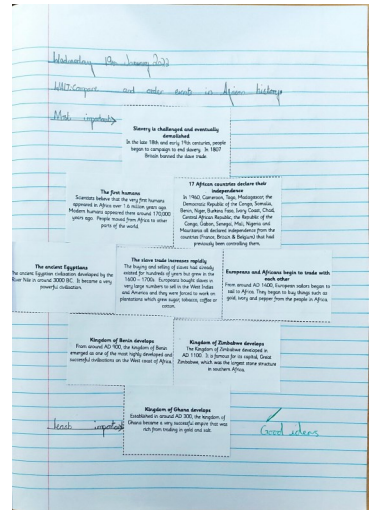 Wednesday 19th January 2022
WALT: Compare and order events in African history
Most important
Slavery is challenged and eventually
demolished
In the late 18th and early 19th centuries, people
began to campaign to end slavery. In 1807
Britain banned the slave trade.
The first humans
Scientists believe that the very first humans
appeared in Africa over 1.6 million years ago.
Modern humans appeared there around 170,000
years ago. People moved from Africa to other
parts of the world.
17 African countries declare their
independence
In 1960, Cameroon, Togo, Madagascar, the
Democratic Republic of the Congo, Somalia,
Benin, Niger, Burkina Faso, Ivory Coast, Chad,
Central African Republic, the Republic of the
Congo, Gabon, Senegal, Mali, Nigeria and
Mauritania all declared independence from the
countries (France, Britain & Belgium) that had
previously been controlling them.
The ancient Egyptians
The ancient Egyptian civilization developed by the
River Nile in around 3000 BC. It became a very
powerful civilization.
The slave trade increases rapidly
The buying and selling of slaves had already
existed for hundreds of years but grew in the
1600 – 1700s. Europeans bought slaves in
very large numbers to sell in the West Indies
and America and they were forced to work on
plantations which grew sugar, tobacco, coffee or
cotton.
Europeans and Africans begin to trade with
each other
From around AD 1400, European sailors began to
sail to Africa. They began to buy things such as
gold, ivory and pepper from the people in Africa.
Kingdom of Benin develops
From around AD 900, the kingdom of Benin
emerged as one of the most highly developed and
successful civilisations on the West coast of Africa.
Kingdom of Zimbabwe develops
The Kingdom of Zimbabwe developed in
AD 1100. It is famous for its capital, Great
Zimbabwe, which was the largest stone structure
in southern Africa.
Kingdom of Ghana develops
Established in around AD 300, the kingdom of
Ghana became a very successful empire that was
rich from trading in gold and salt.
least important
Good ideas